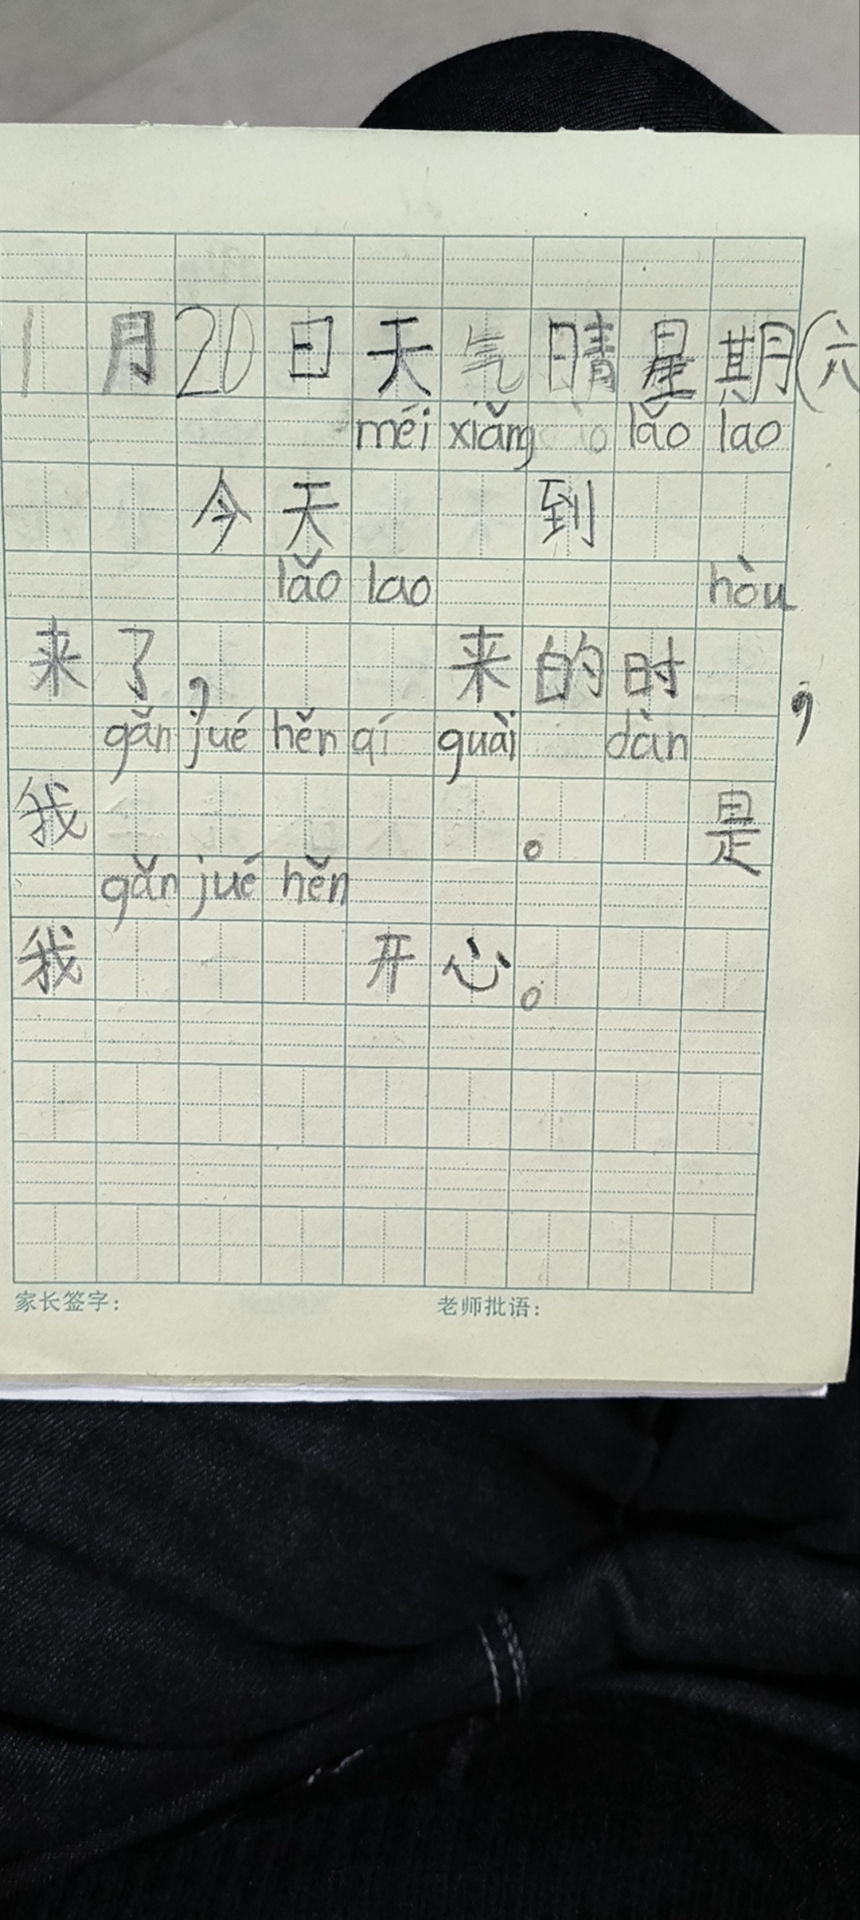 1月20日天气晴星期(六
méi xiǎng lǎo lao
今天 到
lǎo lao hòu
来了, 来的时 ,
gǎn jué hěn qí guài dàn
我 。 是
gǎn jué hěn
我 开心。
家长签字: 老师批语: